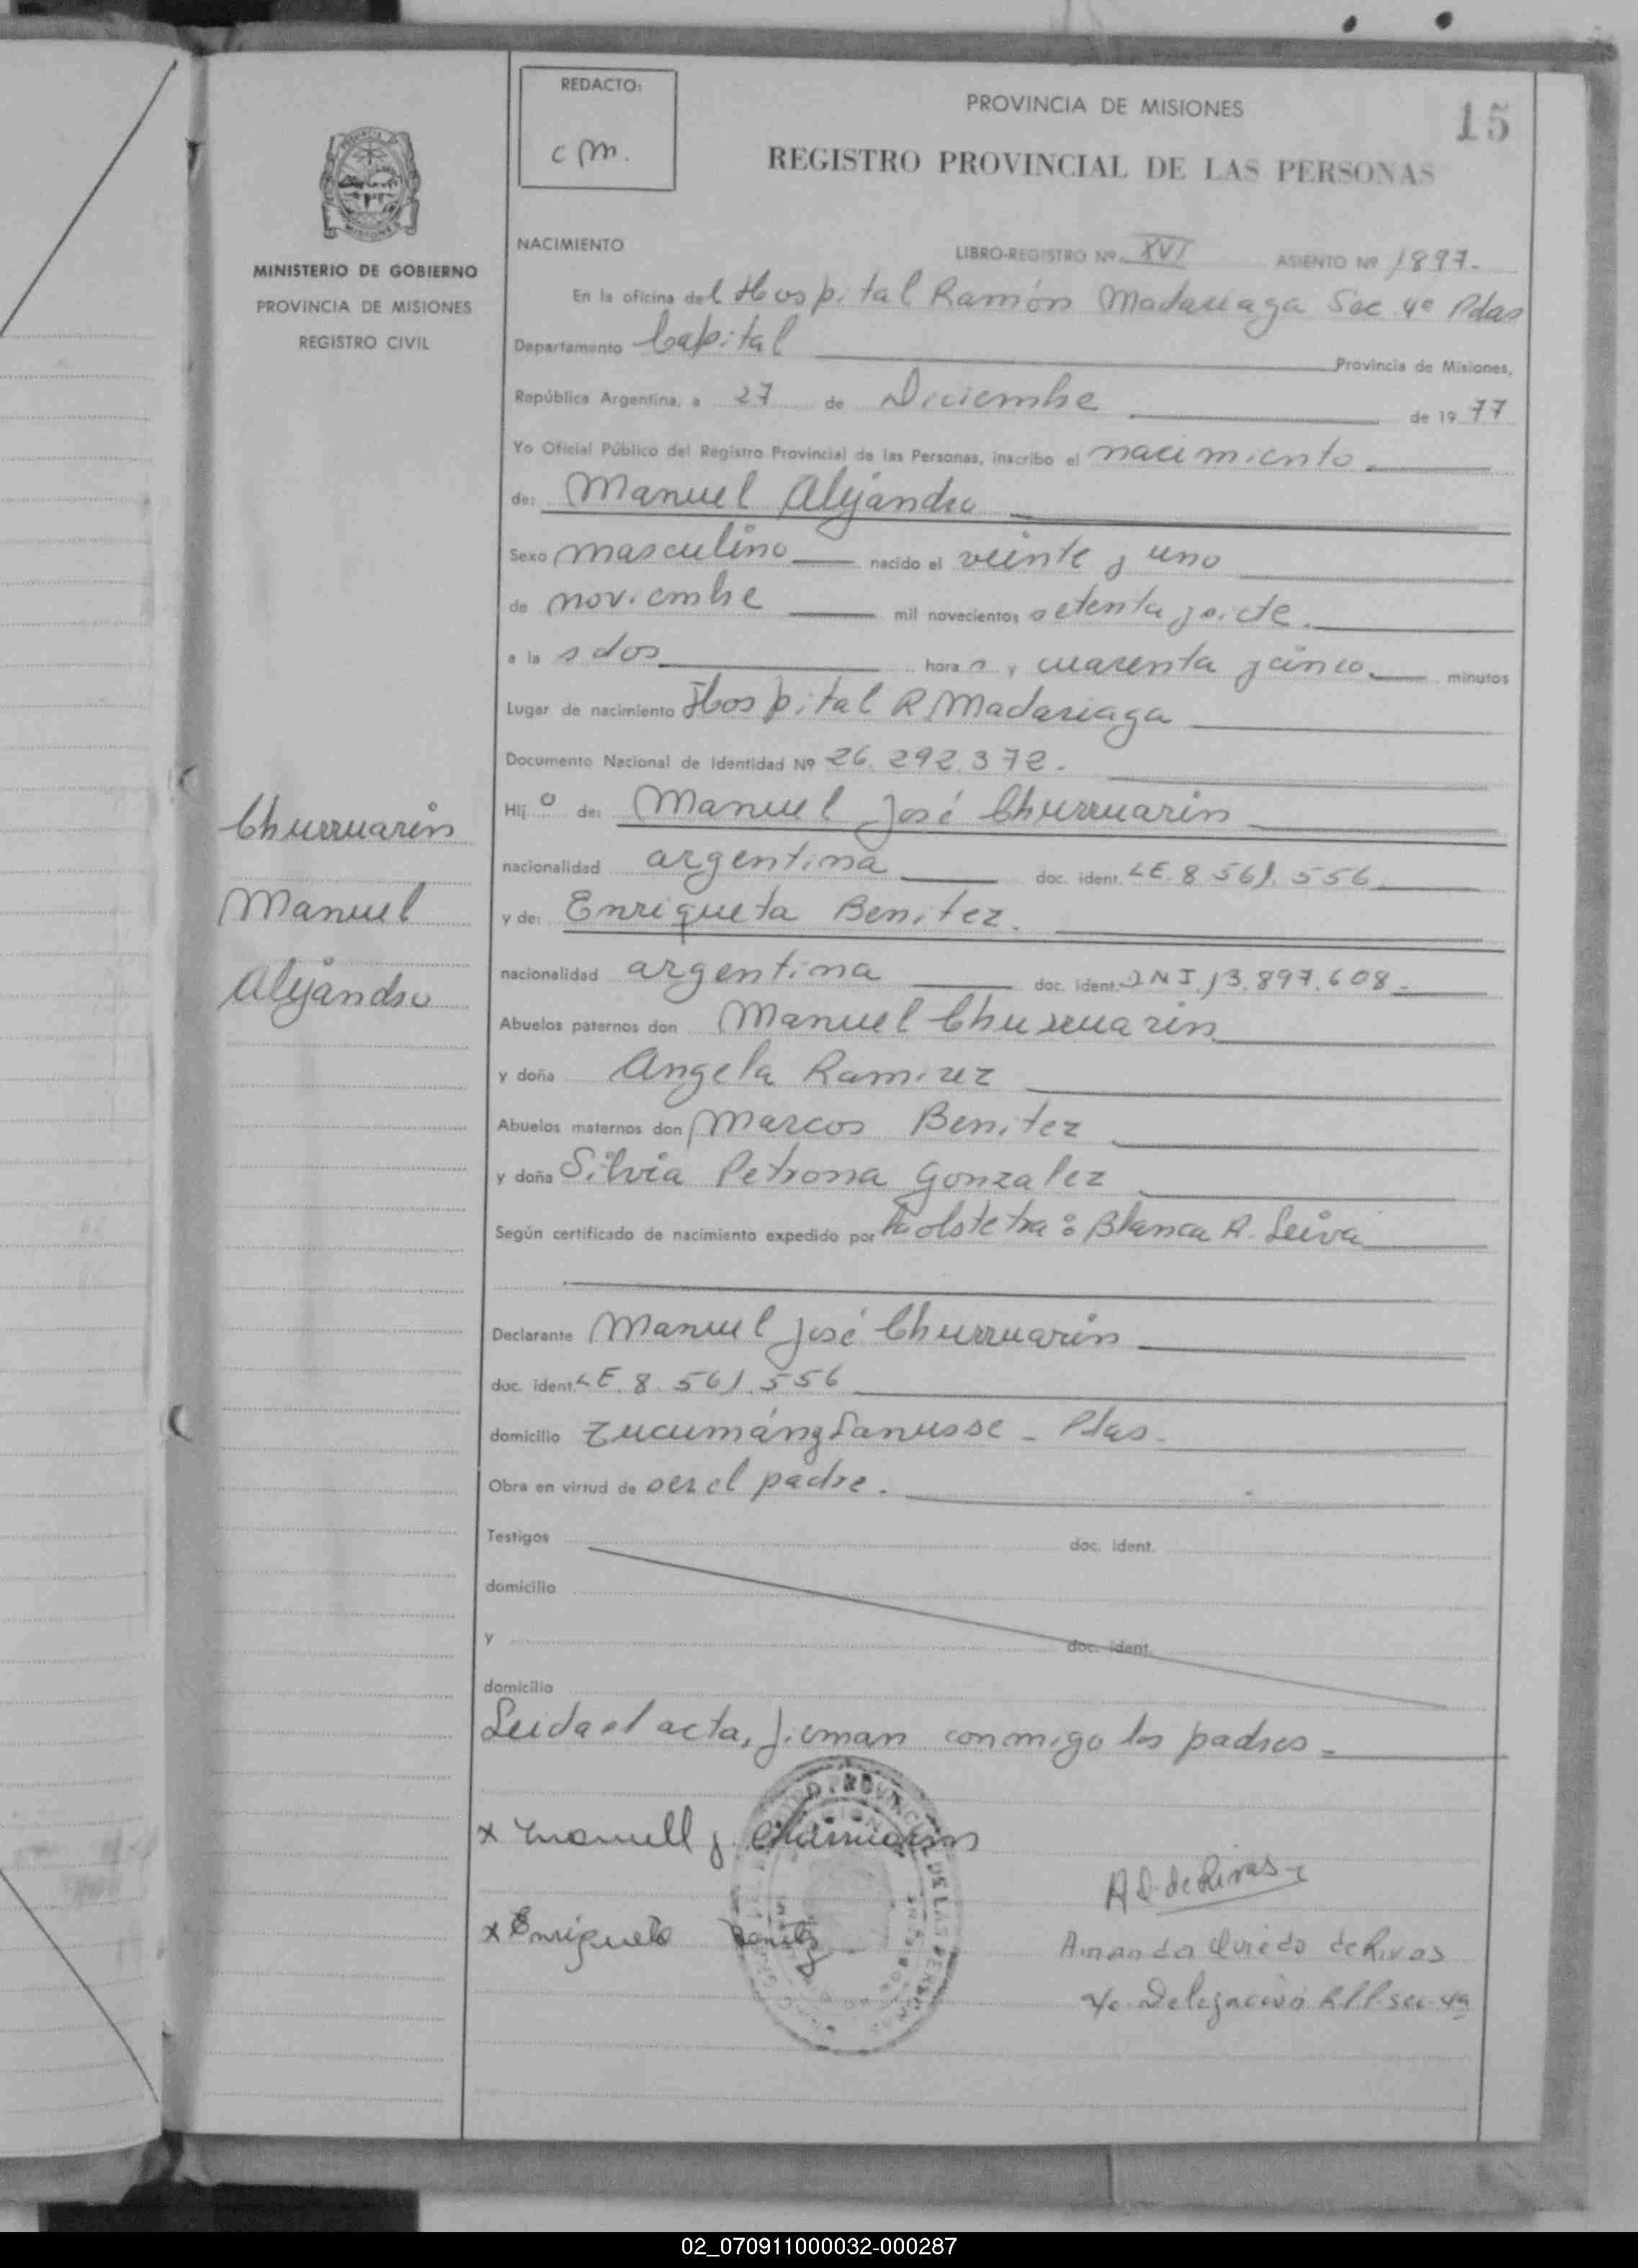 REDACTO:
cm.
PROVINCIA DE MISIONES
15
REGISTRO PROVINCIAL DE LAS PERSONAS
MINISTERIO DE GOBIERNO
PROVINCIA DE MISIONES
REGISTRO CIVIL
NACIMIENTO LIBRO-REGISTRO Nº XVI ASIENTO Nº 1897.
En la oficina del Hospital Ramón Madariaga Sec 4ª Pdas
Departamento Capital Provincia de Misiones,
República Argentina, a 27 de Diciembre de 1977
Yo Oficial Público del Registro Provincial de las Personas, inscribo el nacimiento.
de: Manuel Alejandro
Sexo masculino nacido el veinte y uno
de noviembre mil novecientos setenta y siete.
a las dos horas y cuarenta y cinco. minutos
Lugar de nacimiento Hospital R Madariaga
Documento Nacional de Identidad Nº 26.292.372.
Hijo de: Manuel José Churruarin
nacionalidad argentina doc. ident. LE. 8.561.556
y de: Enriqueta Benitez.
nacionalidad argentina doc. ident. DNI. 13.897.608.
Abuelos paternos don Manuel Churruarin
y doña Angela Ramirez
Abuelos maternos don Marcos Benitez
y doña Silvia Petrona Gonzalez
Según certificado de nacimiento expedido por Blanca R. Leiva
Declarante Manuel José Churruarin
doc. ident. LE. 8.561.556
domicilio Tucumán y Lanusse - Pdas.
Obra en virtud de ser el padre.
Testigos doc. ident.
domicilio
y doc. ident.
domicilio
Leida el acta, firman conmigo los padres
Churruarin
Manuel
Alejandro
x Manuell J. Churruarin
x Enriqueta Benitez
A O. de Rivas
Amanda Oviedo de Rivas
Delegación R.P.P. sec. 4ª
02_070911000032-000287